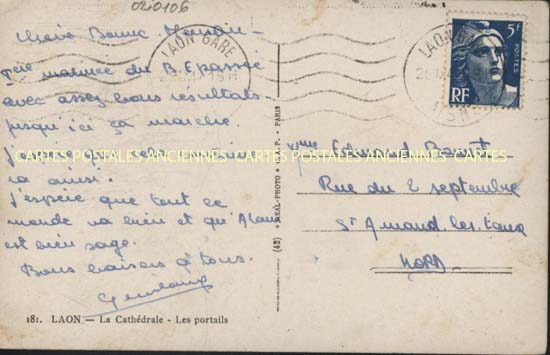 020106
Chère Bonne Maman
1ère matinée du B.E passée
avec assez bons resultats.
jusqu'ici ça marche.
J'espère que cela
ira ainsi.
J'espère que tout ce
monde va bien et qu'Alain
est bien sage.
Bons baisers à tous.
181. LAON — La Cathédrale - Les portails
LAON GARE
LAON GARE
5F
POSTES
RF
(42) « REAL-PHOTO » C.A.P. - PARIS
CARTES POSTALES ANCIENNES CARTES POSTALES ANCIENNES CARTES POSTALES ANCIENNES
Mme Edmond
Rue du 2 septembre
St Amand les Eaux
NORD